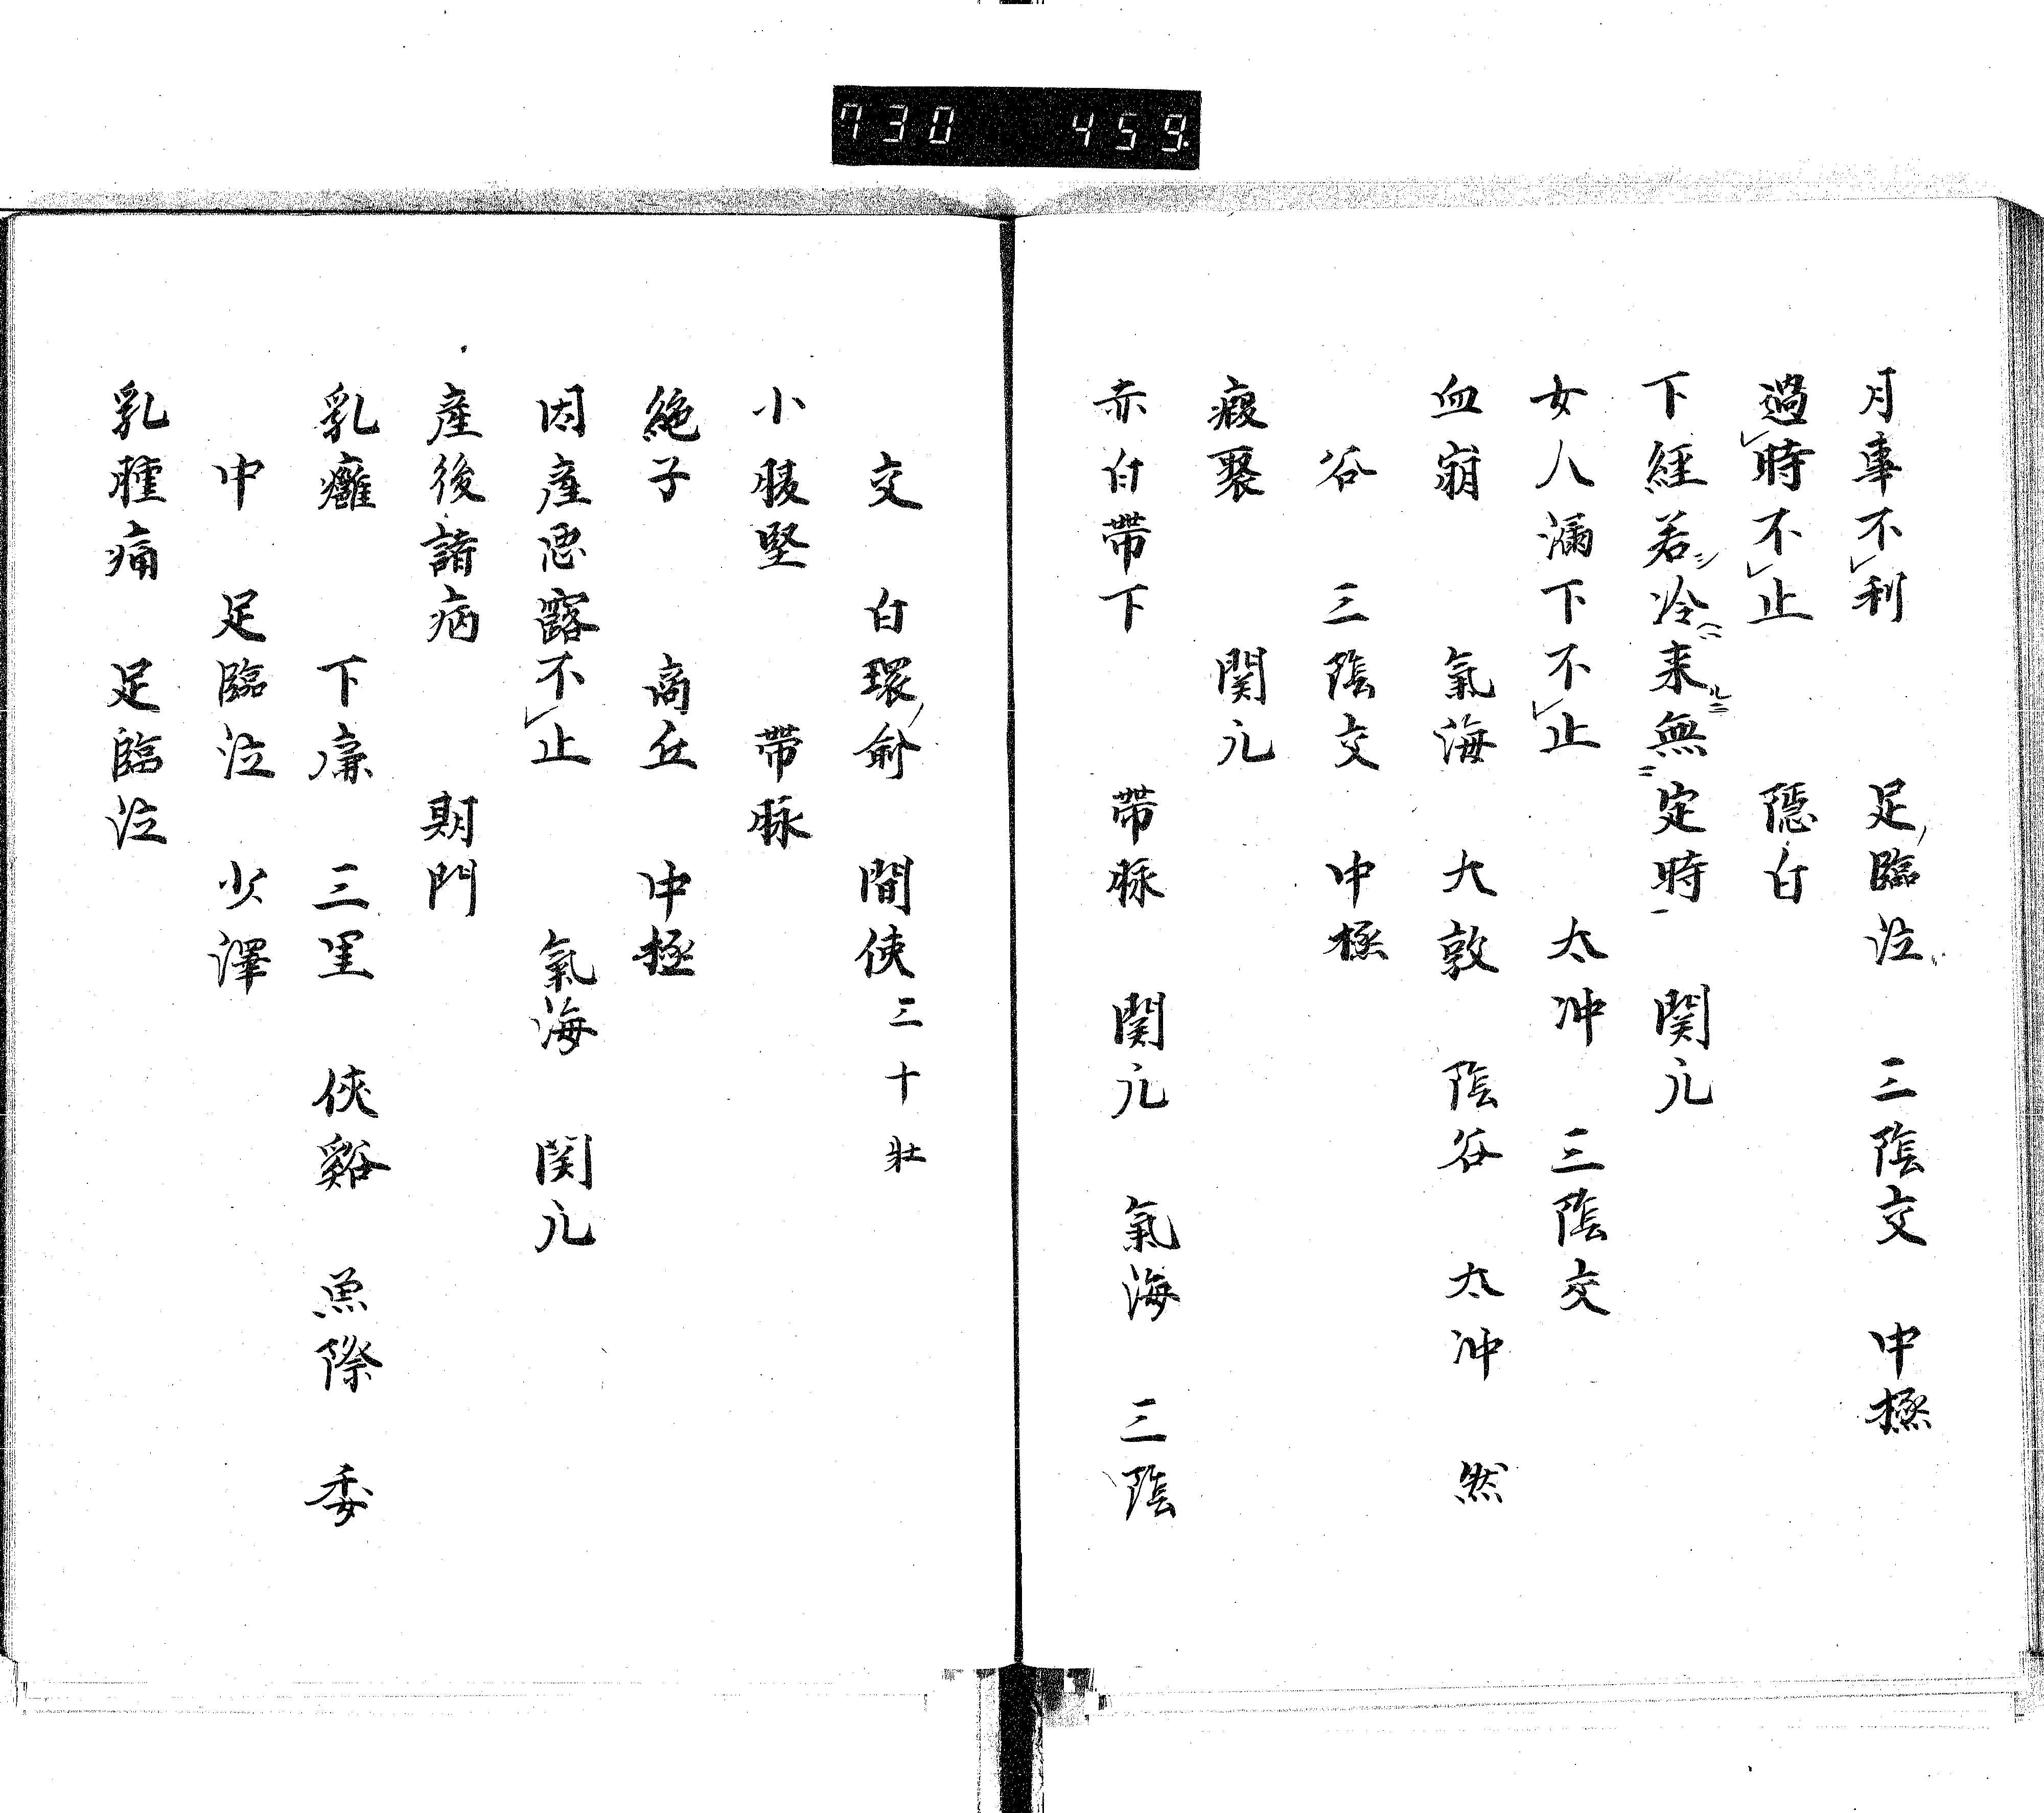 730 459
月事不利 足臨泣 三陰交 中極
過時不止 隠白
下経若冷来無定時 関元
女人漏下不止 太冲 三陰交
血崩 氣海 大敦 陰谷 太冲 然
谷 三陰交 中極
瘕聚 関元
赤白帶下 帶脉 関元 氣海 三陰
交 白環俞 間使三十壮
小腹堅 帶脉
絶子 商丘 中極
因産恶露不止 氣海 関元
產後諸病 期門
乳癰 下廉 三里 俠谿 魚際 委
中 足臨泣 少澤
乳腫痛 足臨泣